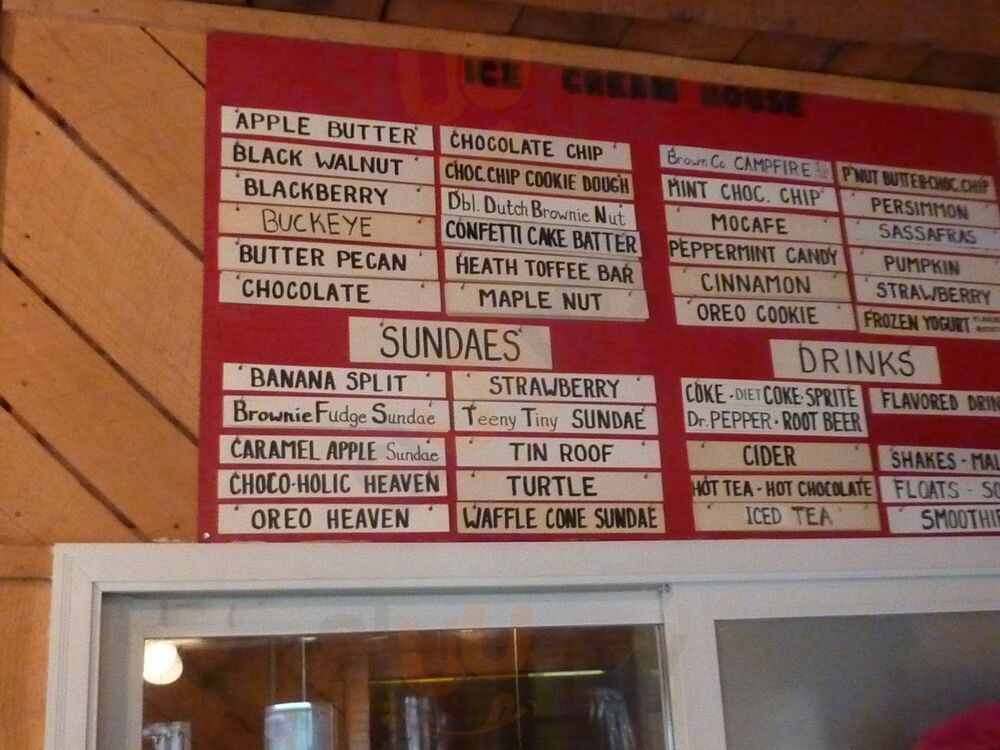 ICE CREAM HOUSE
APPLE BUTTER
BLACK WALNUT
BLACKBERRY
BUCKEYE
BUTTER PECAN
CHOCOLATE
CHOCOLATE CHIP
CHOC.CHIP COOKIE DOUGH
Dbl. Dutch Brownie Nut
CONFETTI CAKE BATTER
HEATH TOFFEE BAR
MAPLE NUT
Brown Co. CAMPFIRE
MINT CHOC. CHIP
MOCAFE
PEPPERMINT CANDY
CINNAMON
OREO COOKIE
P'NUT BUTTER-CHOC.CHIP
PERSIMMON
SASSAFRAS
PUMPKIN
STRAWBERRY
FROZEN YOGURT
SUNDAES
BANANA SPLIT
Brownie Fudge Sundae
CARAMEL APPLE Sundae
CHOCO-HOLIC HEAVEN
OREO HEAVEN
STRAWBERRY
Teeny Tiny SUNDAE
TIN ROOF
TURTLE
WAFFLE CONE SUNDAE
DRINKS
COKE · DIET COKE · SPRITE
Dr. PEPPER · ROOT BEER
CIDER
HOT TEA - HOT CHOCOLATE
ICED TEA
FLAVORED DRIN
SHAKES - MAL
FLOATS - SO
SMOOTHIE